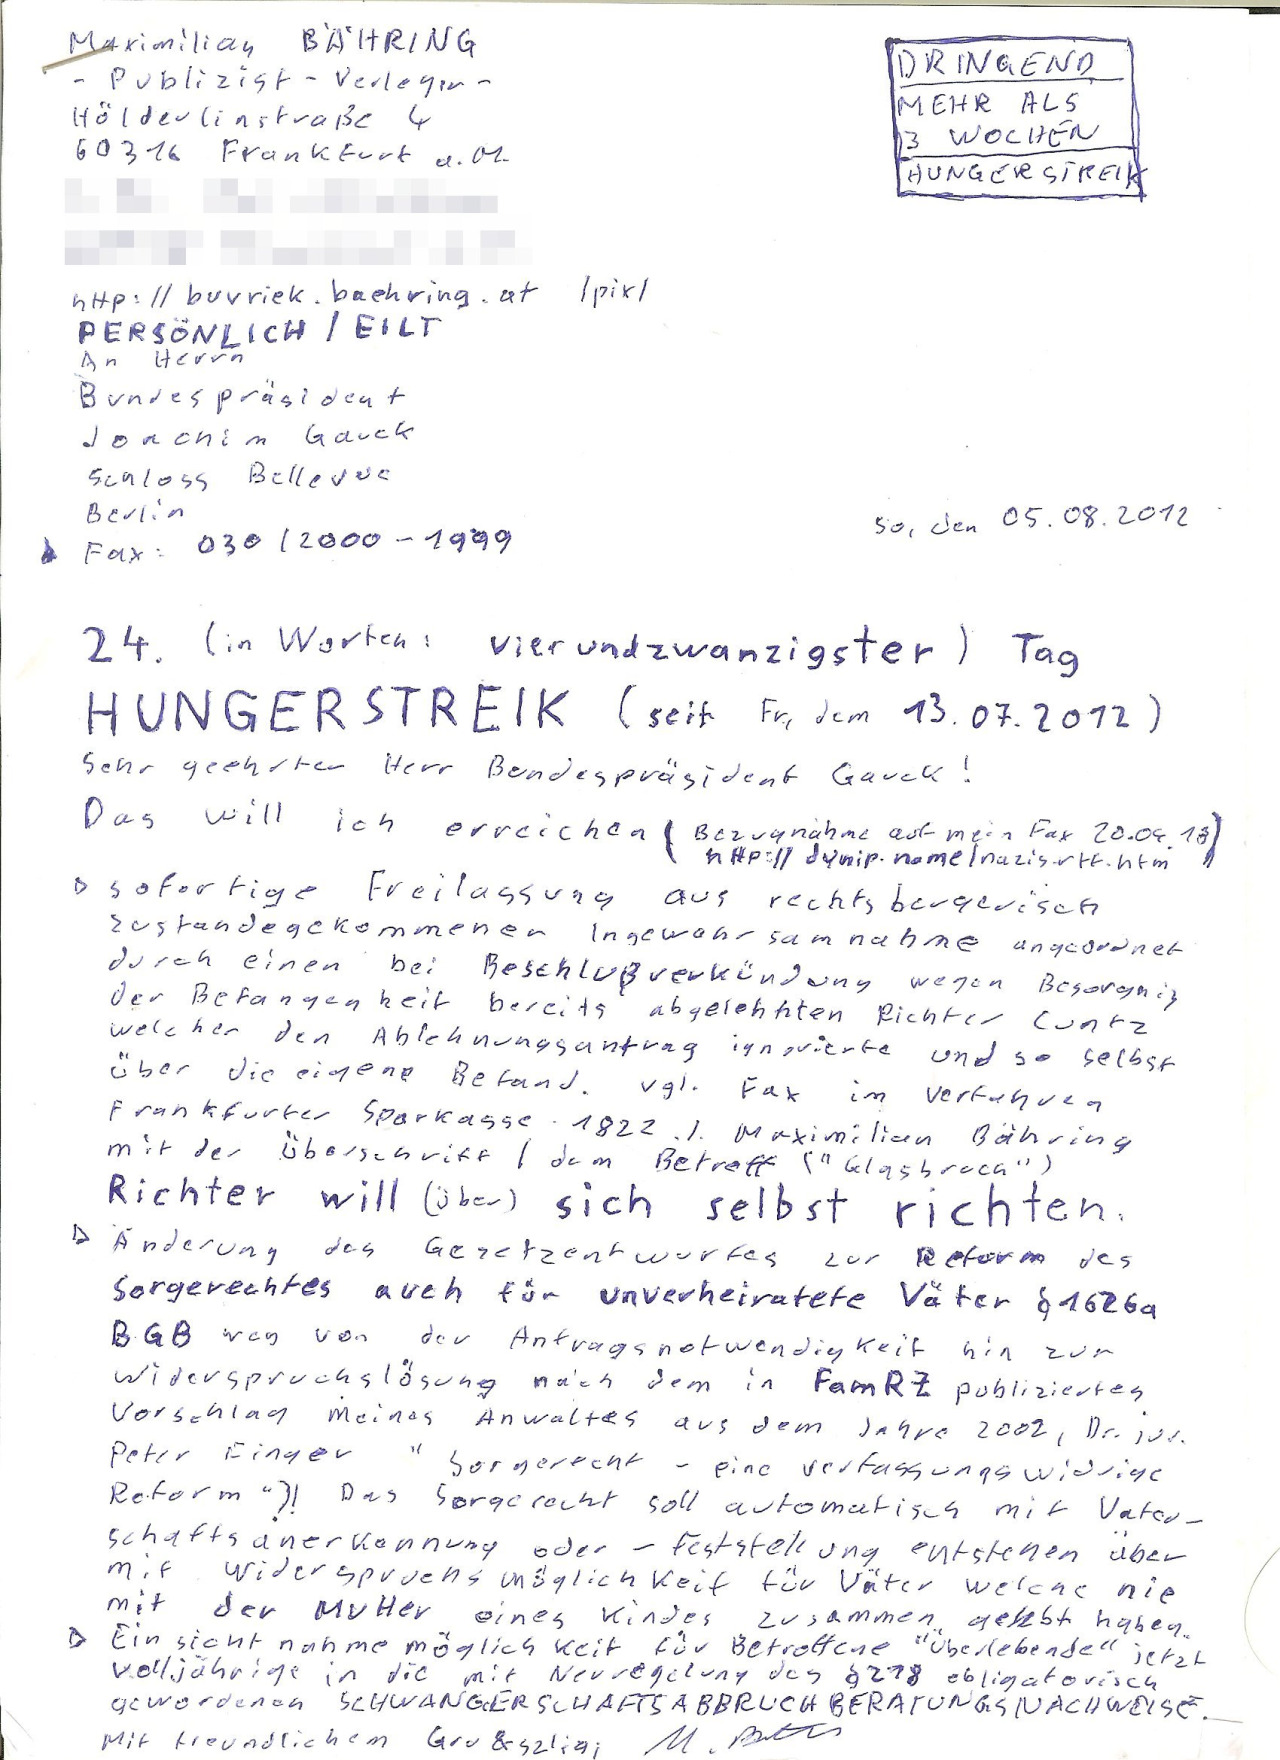 Maximilian BÄHRING
- Publizist - Verleger -
Hölderlinstraße 4
60316 Frankfurt a.M.
DRINGEND
MEHR ALS
3 WOCHEN
HUNGERSTREIK
http://buvriek.baehring.at /pix/
PERSÖNLICH / EILT
An Herrn
Bundespräsident
Joachim Gauck
Schloss Bellevue
Berlin
Fax: 030/2000-1999
So, den 05.08.2012
24. (in Worten: vierundzwanzigster) Tag
HUNGERSTREIK (seit Fr, dem 13.07.2012)
Sehr geehrter Herr Bundespräsident Gauck!
Das will ich erreichen (Bezugnahme auf mein Fax
http://dynip.name/nazis-rtf.htm)
sofortige Freilassung aus rechtsbeugerisch
zustandegekommenen Ingewahrsamnahme angeordnet
durch einen bei Beschlußverkündung wegen Besorgnis
der Befangenheit bereits abgelehnten Richter Cuntz
welcher den Ablehnungsantrag ignorierte und so selbst
über die eigene Befand. vgl. Fax im Verfahren
Frankfurter Sparkasse 1822 ./. Maximilian Bähring
mit der Überschrift / dem Betreff ("Glasbruch")
Richter will (über) sich selbst richten.
Änderung des Gesetzentwurfes zur Reform des
Sorgerechtes auch für unverheiratete Väter §1626a
BGB weg von der Antragsnotwendigkeit hin zur
Widerspruchslösung nach dem in FamRZ publizierten
Vorschlag meines Anwaltes aus dem Jahre 2002, Dr. jur.
Peter Finger "Sorgerecht - eine verfassungswidrige
Reform"?! Das Sorgerecht soll automatisch mit Vater-
schaftsanerkennung oder -feststellung entstehen über
mit Widerspruchsmöglichkeit für Väter welche nie
mit der Mutter eines Kindes zusammen gelebt haben.
Einsichtnahmemöglichkeit für Betroffene "Überlebende" jetzt
volljährige in die mit Neuregelung des §218 obligatorisch
gewordenen SCHWANGERSCHAFTSABBRUCHBERATUNGSNACHWEISE.
Mit freundlichem